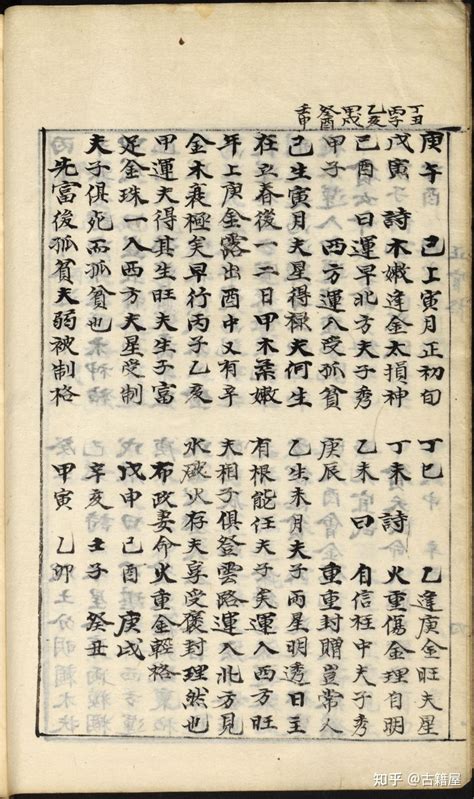 丁丑
丙子
乙亥
甲戌
癸酉
壬申
庚午 己上寅月正初旬
戊寅 詩 木嫩逢金太損神
己酉 曰 運早北方夫子秀
甲子 西方運入受孤貧
己生寅月夫星得祿夫何生
在立春後一二日甲木柔嫩
年上庚金露出酉中又有辛
金木衰極矣早行丙子乙亥
甲運夫得其生旺夫生子富
足金珠一入西方夫星受制
夫子俱死而孤貧也
先富後孤貧夫弱被制格
丁巳 乙逢庚金旺夫星
丁未 詩 火重傷金理自明
乙未 曰 自信柱中夫子秀
庚辰 重重封贈豈常人
乙生未月夫子兩星明透日主
有根能任夫子矣運入西方
夫相子俱登雲路運入北方見
水破火存夫享受褒封理然也
布政妻命火重金輕格
戊申 己酉 庚戌
辛亥 壬子 癸丑
甲寅 乙卯
知乎 @古籍屋